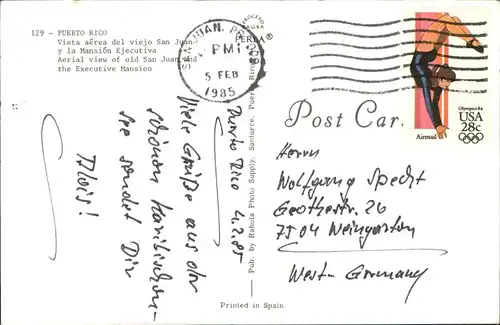 129 - PUERTO RICO
Vista aérea del viejo San Juan
y la Mansión Ejecutiva
Aerial view of old San Juan and
the Executive Mansion
SAN JUAN, PR
PM
5 FEB
1985
PERLA®
Puerto Rico 4.2.85
Viele Grüße aus der
schönen Karibischen-
See sendet Dir
Alois!
Pub. by Rahola Photo Supply, Santurce, Puerto Rico
Post Car
Olympics 84
USA
28c
Airmail
Herrn
Wolfgang Specht
Geothestr. 26
7504 Weingarten
West-Germany
Printed in Spain